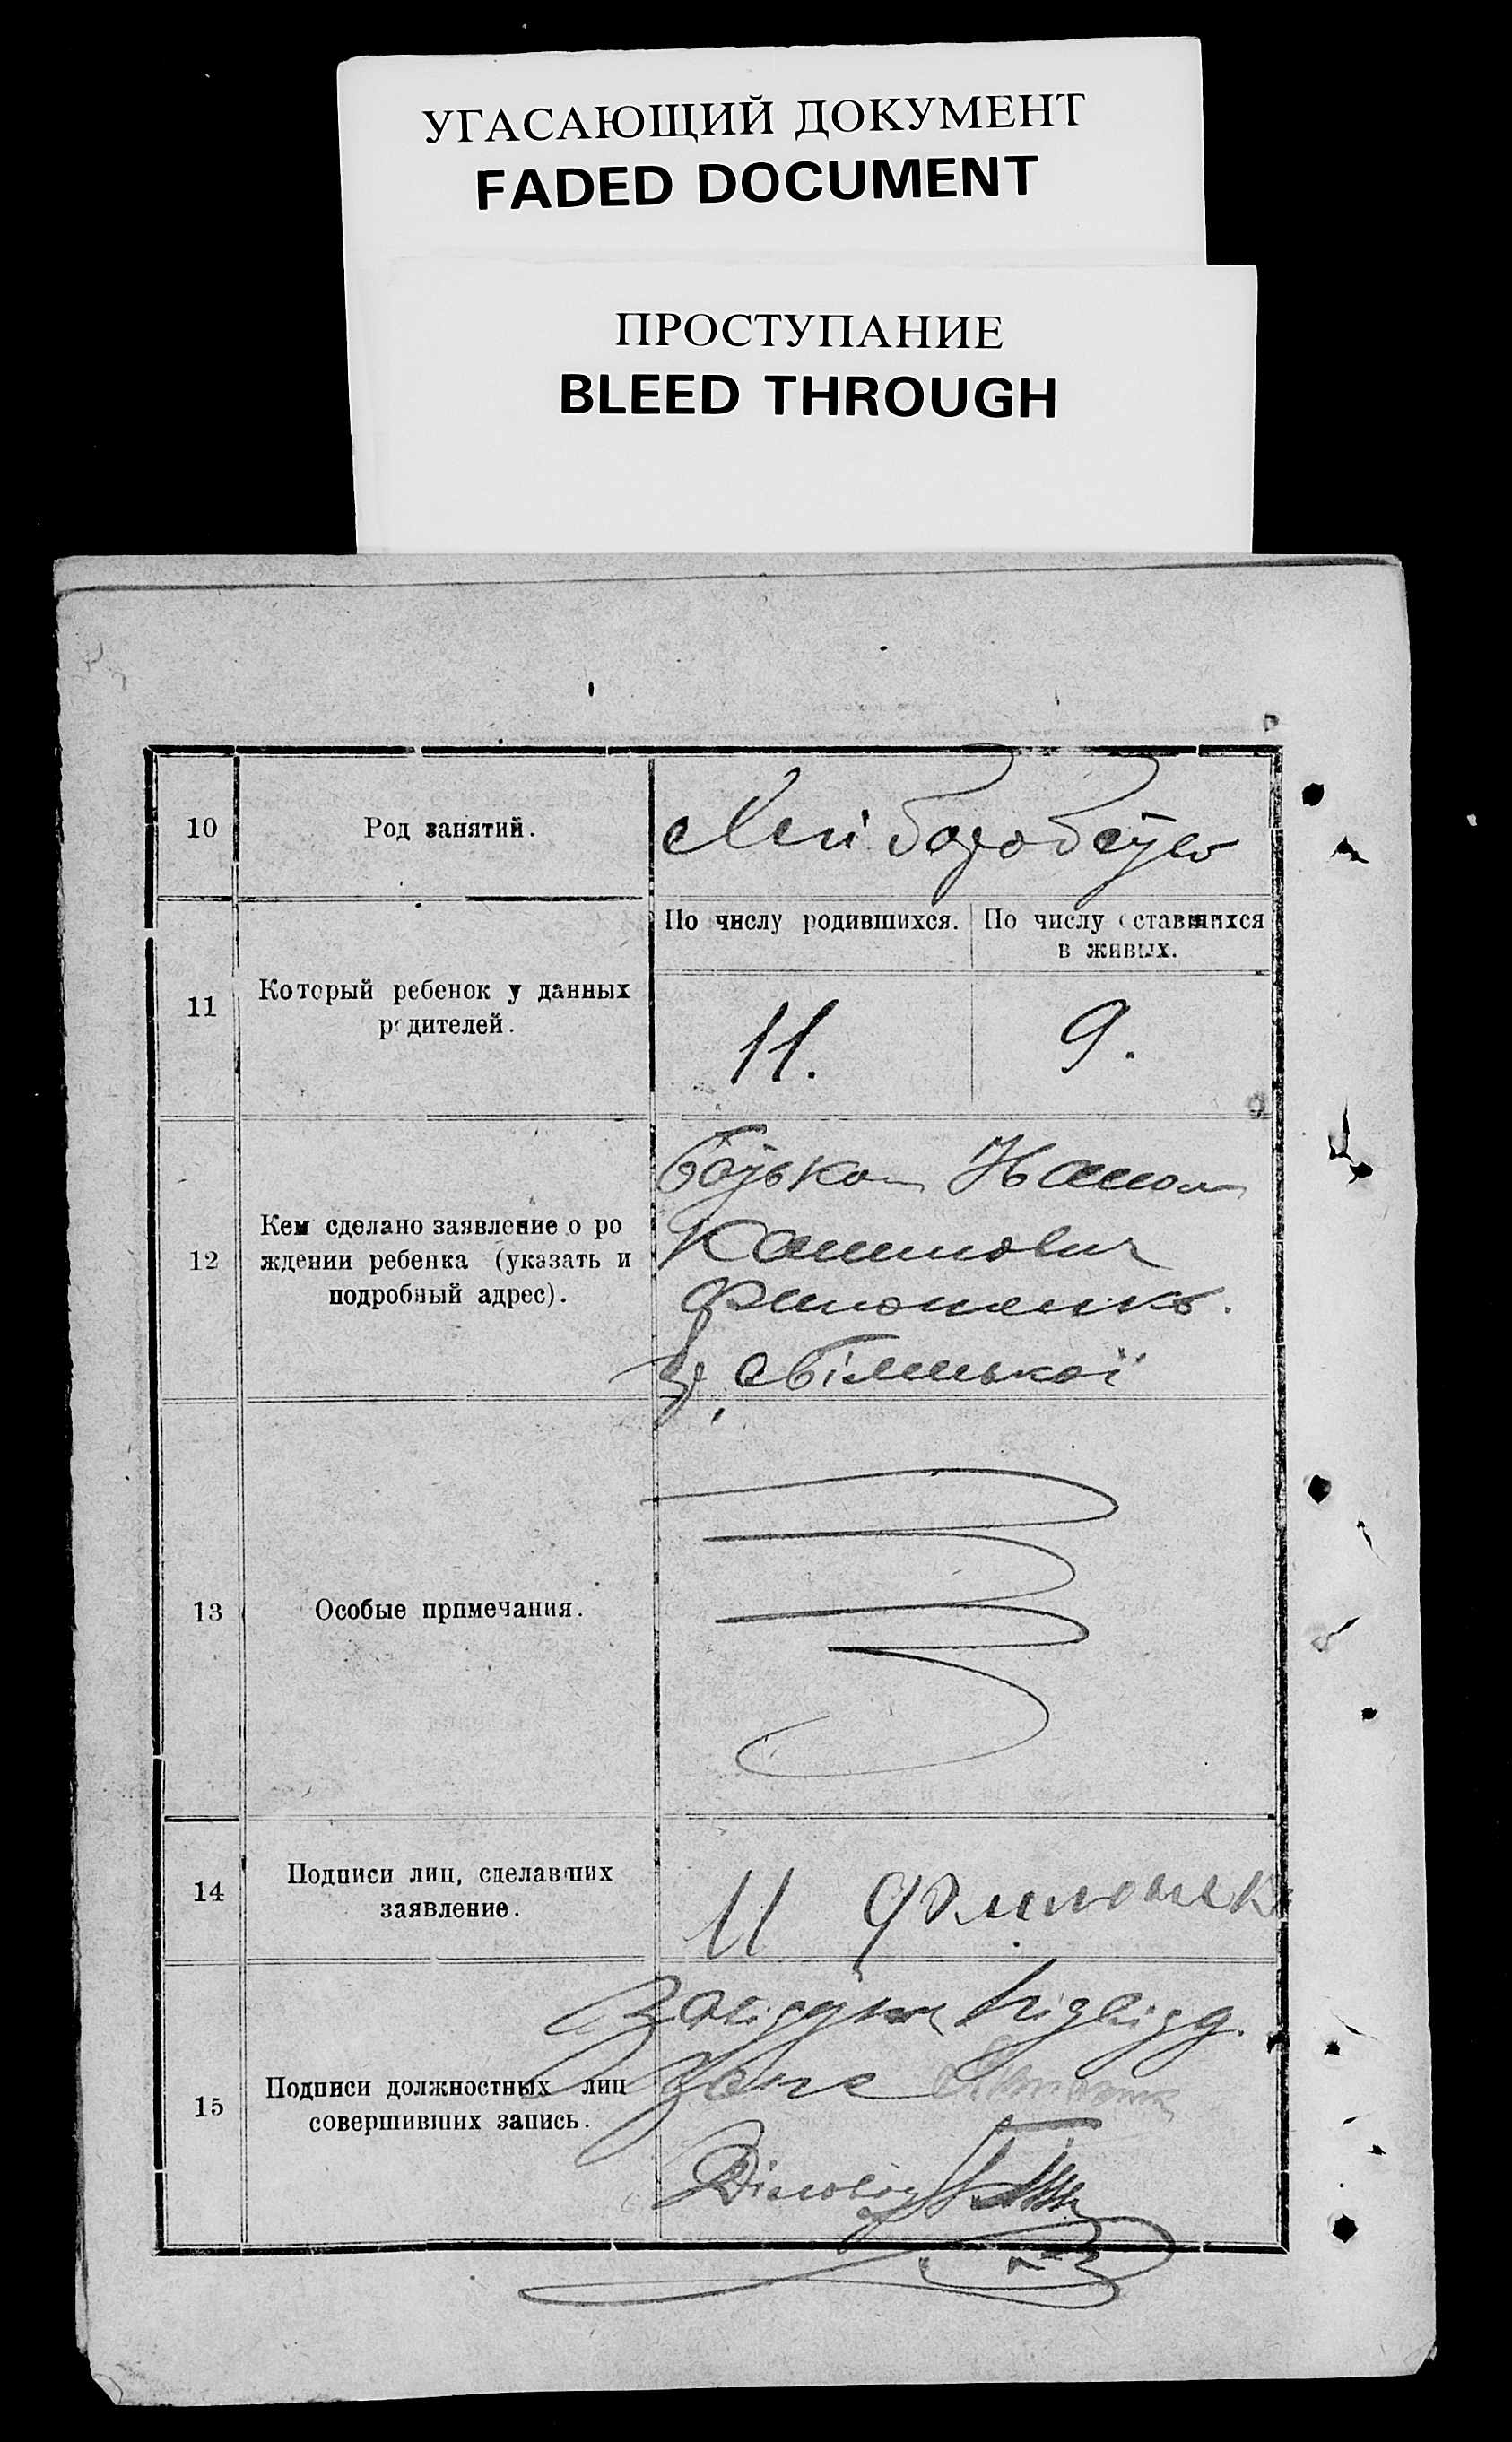 УГАСАЮЩИЙ ДОКУМЕНТ
FADED DOCUMENT
ПРОСТУПАНИЕ
BLEED THROUGH
10
Род занятий.
Хлібороб
11
Который ребенок у данных
родителей.
По числу родившихся.
По числу оставшихся
в живых.
11.
9.
12
Кем сделано заявление о ро
ждении ребенка (указать и
подробный адрес).
Батьком
Филоненко.
13
Особые примечания.
14
Подписи лиц, сделавших
заявление.
15
Подписи должностных лиц
совершивших запись.
Завідуюч. підвідд.
Загс
Діловод